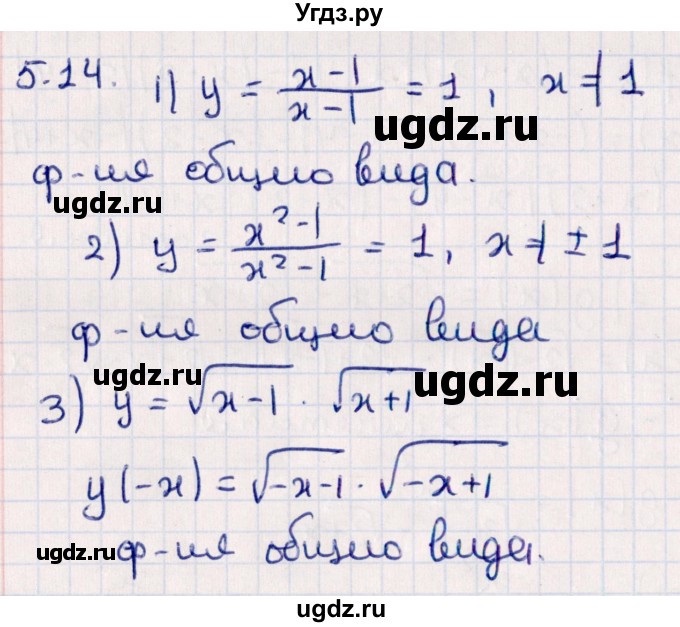 Угдз.ру
5.14. 1) y = x-1 / x-1 = 1, x ≠ 1
ugdz.ru
ф-ия общио вида.
ugdz.ru
2) y = x²-1 / x²-1 = 1, x ≠ ± 1
ф-ия общио вида
ugdz.ru
ugdz.ru
3) y = √x-1 · √x+1
y(-x) = √-x-1 · √-x+1
ugdz.ru
ugdz.ru
ф-ия общио вида.
ugdz.ru
ugdz.ru